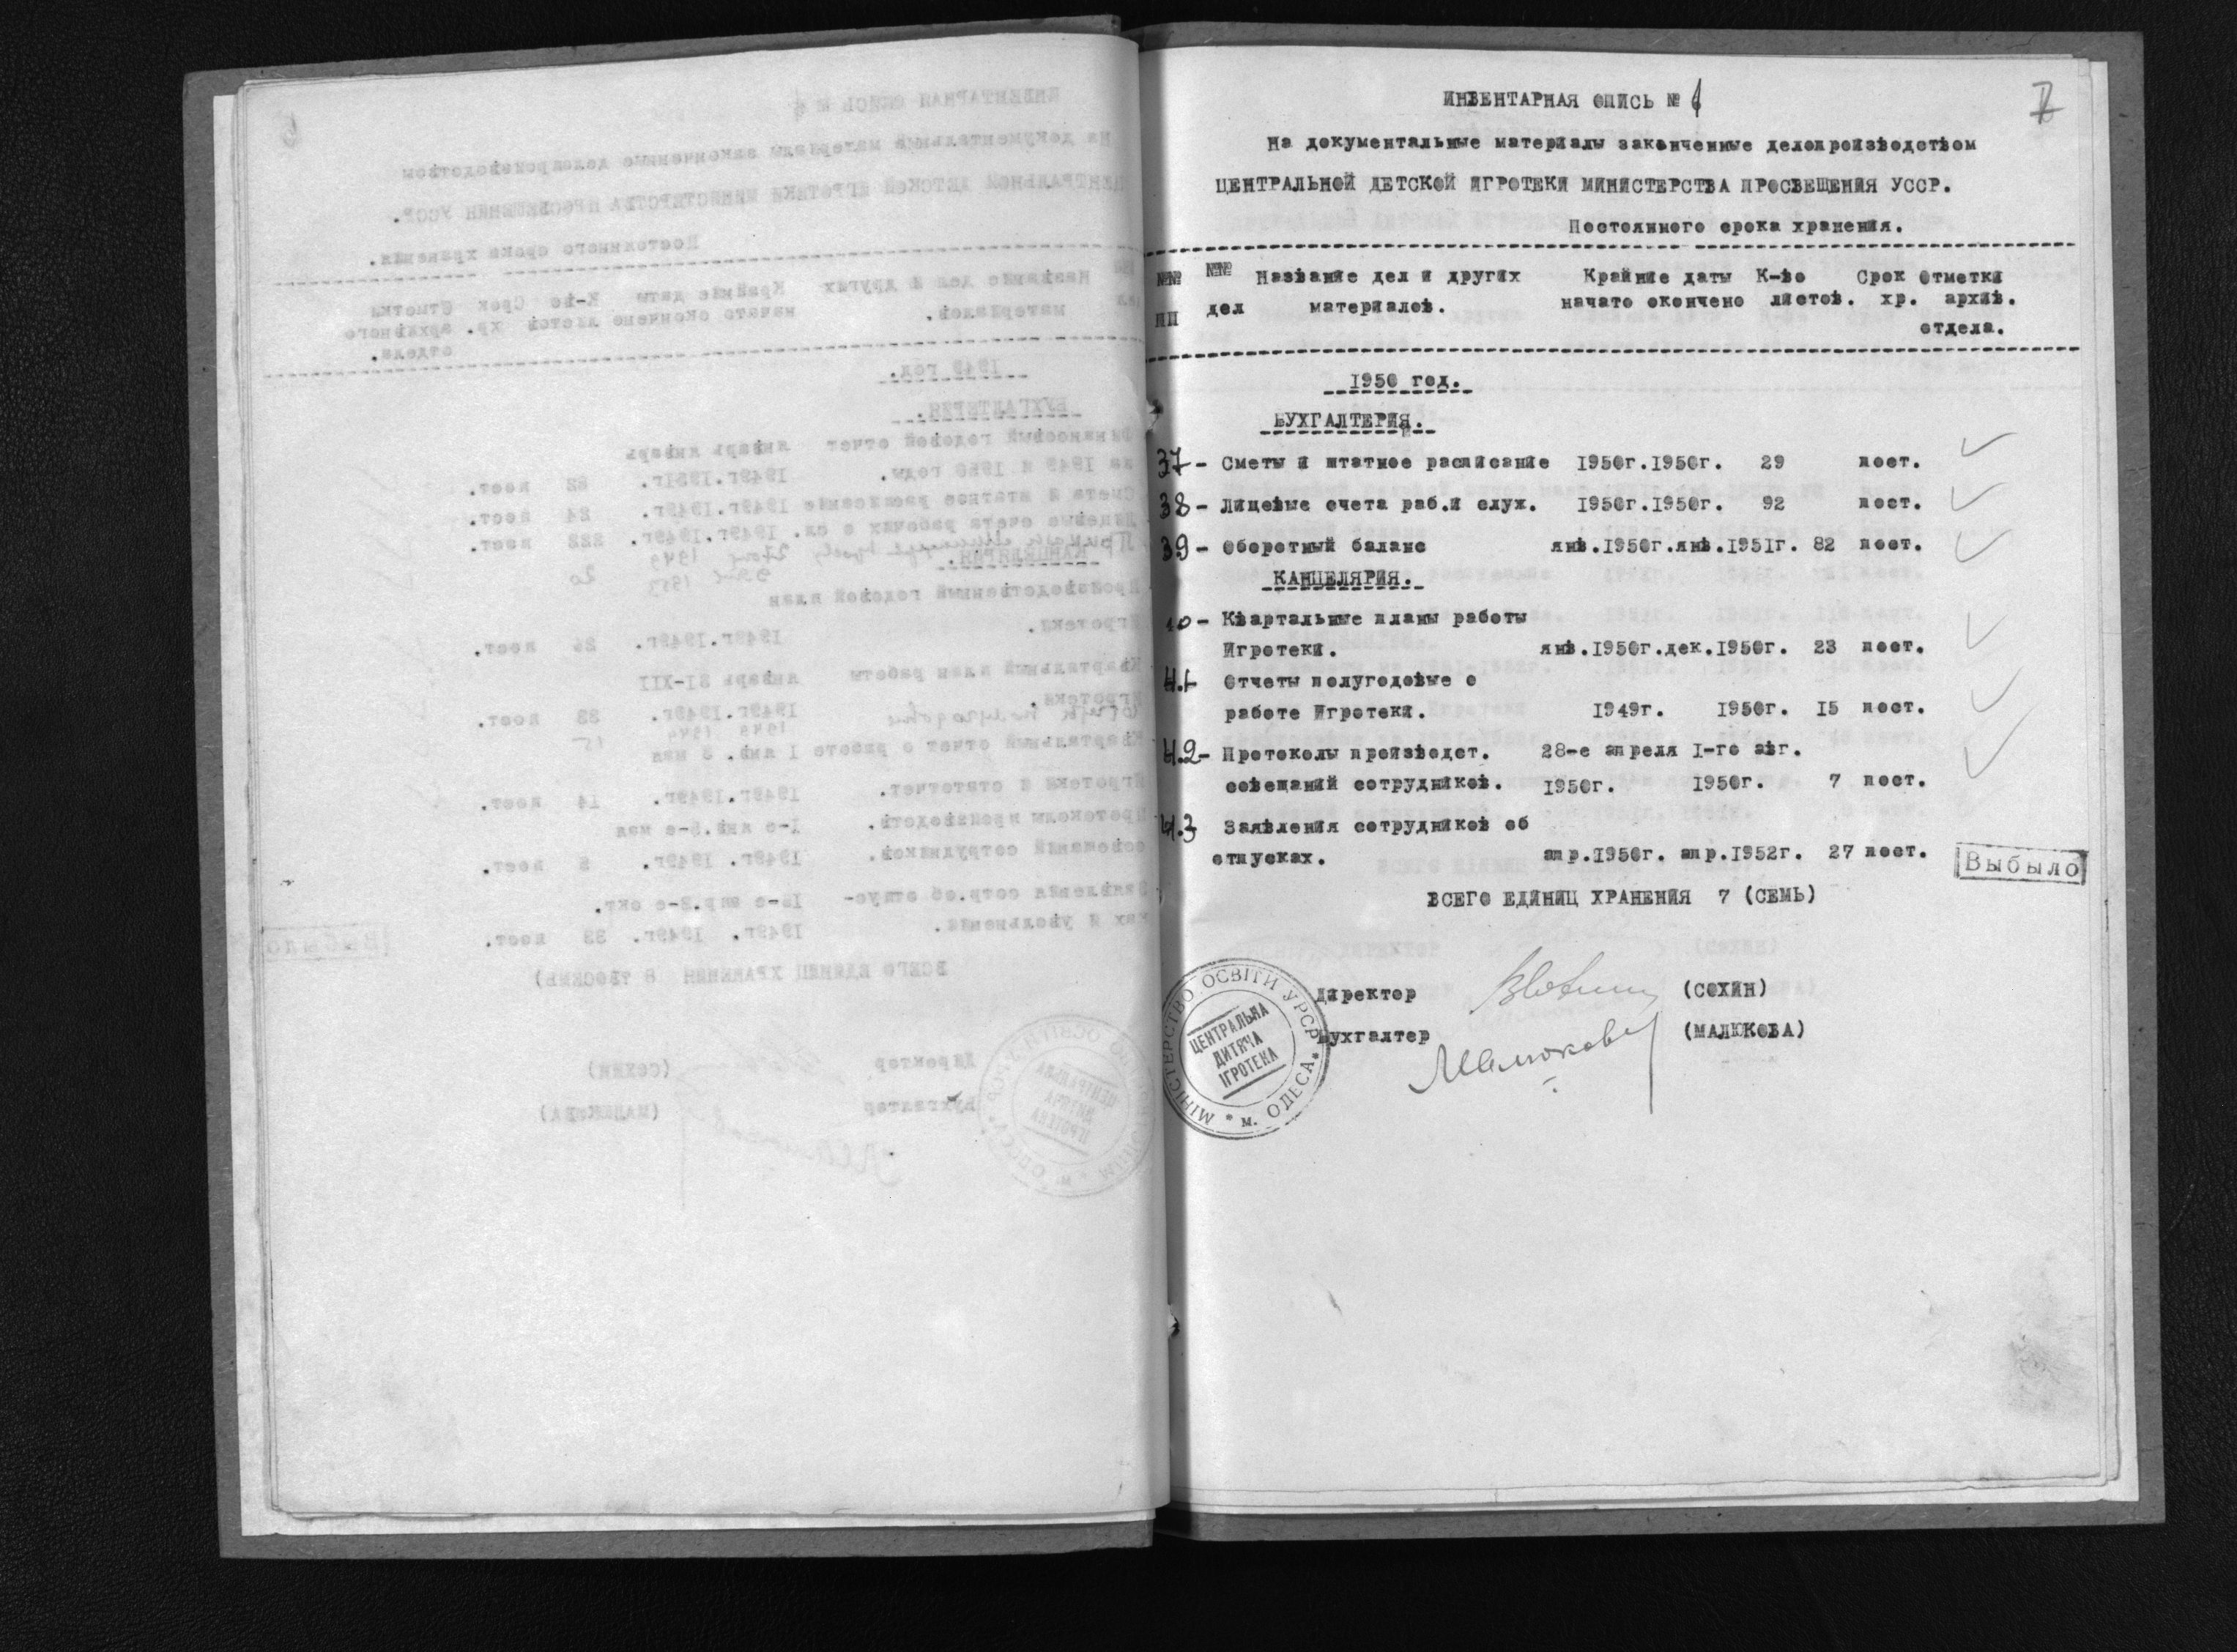 ИНВЕНТАРНАЯ ОПИСЬ № 1
7
На документальные материалы законченные делопроизводством
ЦЕНТРАЛЬНОЙ ДЕТСКОЙ ИГРОТЕКИ МИНИСТЕРСТВА ПРОСВЕЩЕНИЯ УССР.
Постоянного срока хранения.
№№ №№ Название дел и других Крайние даты К-во Срок Отметки
пп дел материалов. начато окончено листов. хр. архив.
отдела.
1950 год.
БУХГАЛТЕРИЯ.
37 - Сметы и штатное расписание 1950г.1950г. 29 пост.
38 - Лицевые счета раб.и служ. 1950г.1950г. 92 пост.
39 - Оборотный баланс янв.1950г.янв.1951г. 82 пост.
КАНЦЕЛЯРИЯ.
40 - Квартальные планы работы
Игротеки. янв.1950г.дек.1950г. 23 пост.
41 Отчеты полугодовые о
работе Игротеки. 1949г. 1950г. 15 пост.
42 - Протоколы производст. 28-е апреля 1-го авг.
совещаний сотрудников. 1950г. 1950г. 7 пост.
43 Заявления сотрудников об
отпусках. апр.1950г. апр.1952г. 27 пост.
Выбыло
ВСЕГО ЕДИНИЦ ХРАНЕНИЯ 7 (СЕМЬ)
Директор (СОХИН)
Бухгалтер Малюкова (МАЛЮКОВА)
МІНІСТЕРСТВО ОСВІТИ УРСР * м. ОДЕСА *
ЦЕНТРАЛЬНА
ДИТЯЧА
ІГРОТЕКА